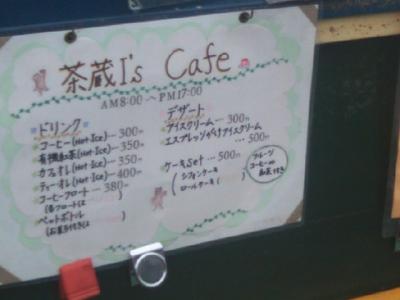 茶蔵I's Cafe
AM8:00 〜 PM17:00
ドリンク
コーヒー(Hot・Ice) … 300円
有機紅茶(Hot・Ice) … 350円
カフェオレ(Hot・Ice) … 350円
ティーオレ(Hot・Ice) … 400円
コーヒーフロート … 380円
ペットボトル
デザート
アイスクリーム … 300円
エスプレッソがけアイスクリーム
… 500円
ケーキset … 500円
(シフォンケーキ
ロールケーキ)
フルーツ
コーヒーor
紅茶付き